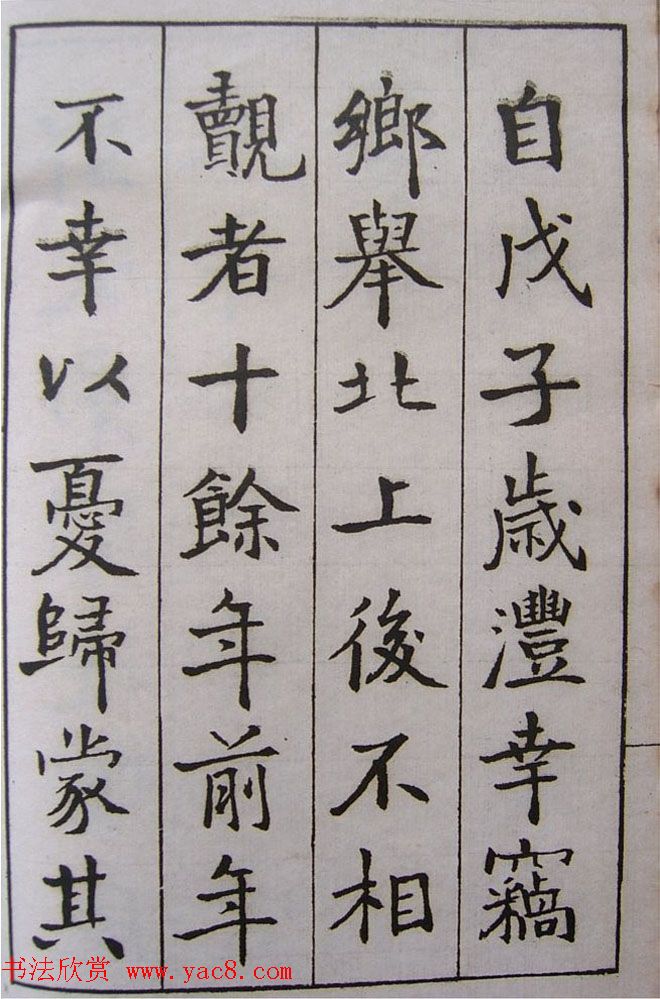 自戊子歲灃幸竊
鄉舉北上後不相
覿者十餘年前年
不幸以憂歸蒙其
书法欣赏 www.yac8.com